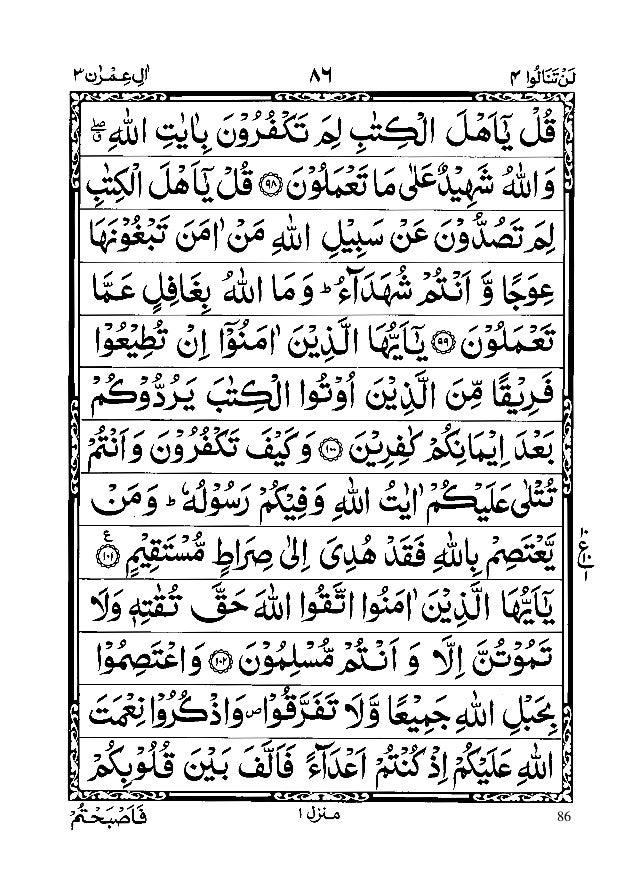 لَنْ تَنَالُوا ٤
٨٦
اٰلِ عِمْرٰن ٣
قُلْ يٰۤاَهْلَ الْكِتٰبِ لِمَ تَكْفُرُوْنَ بِاٰيٰتِ اللّٰهِ ۖۗ
وَاللّٰهُ شَهِيْدٌ عَلٰى مَا تَعْمَلُوْنَ ﴿٩٨﴾ قُلْ يٰۤاَهْلَ الْكِتٰبِ
لِمَ تَصُدُّوْنَ عَنْ سَبِيْلِ اللّٰهِ مَنْ اٰمَنَ تَبْغُوْنَهَا
عِوَجًا وَّ اَنْتُمْ شُهَدَآءُ ؕ وَمَا اللّٰهُ بِغَافِلٍ عَمَّا
تَعْمَلُوْنَ ﴿٩٩﴾ يٰۤاَيُّهَا الَّذِيْنَ اٰمَنُوْۤا اِنْ تُطِيْعُوْا
فَرِيْقًا مِّنَ الَّذِيْنَ اُوْتُوا الْكِتٰبَ يَرُدُّوْكُمْ
بَعْدَ اِيْمَانِكُمْ كٰفِرِيْنَ ﴿١٠٠﴾ وَكَيْفَ تَكْفُرُوْنَ وَاَنْتُمْ
تُتْلٰى عَلَيْكُمْ اٰيٰتُ اللّٰهِ وَفِيْكُمْ رَسُوْلُهٗ ؕ وَمَنْ
يَّعْتَصِمْ بِاللّٰهِ فَقَدْ هُدِىَ اِلٰى صِرَاطٍ مُّسْتَقِيْمٍ ﴿١٠١﴾ ع
١٠ ع ١٠ ١
يٰۤاَيُّهَا الَّذِيْنَ اٰمَنُوا اتَّقُوا اللّٰهَ حَقَّ تُقٰتِهٖ وَلَا
تَمُوْتُنَّ اِلَّا وَ اَنْتُمْ مُّسْلِمُوْنَ ﴿١٠٢﴾ وَاعْتَصِمُوْا
بِحَبْلِ اللّٰهِ جَمِيْعًا وَّلَا تَفَرَّقُوْا ص وَاذْكُرُوْا نِعْمَتَ
اللّٰهِ عَلَيْكُمْ اِذْ كُنْتُمْ اَعْدَآءً فَاَلَّفَ بَيْنَ قُلُوْبِكُمْ
86
منزل ١
فَاَصْبَحْتُمْ